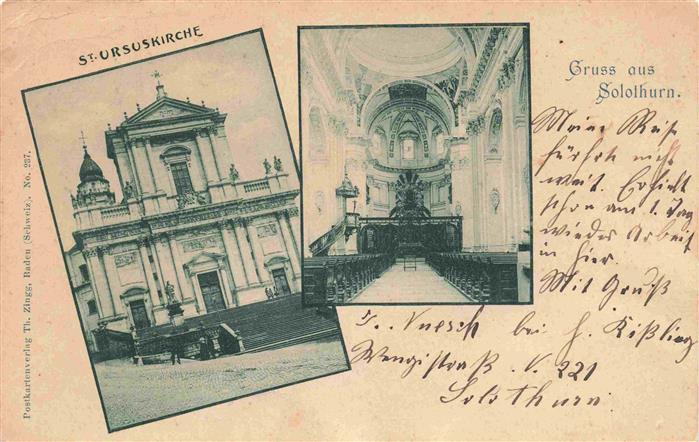 ST. URSUSKIRCHE
Gruss aus
Solothurn.
Postkartenverlag Th. Zingg, Baden (Schweiz), No. 237.
Meine Reise
führt nicht
weit. Erhielt
schon am 1. Tag
wieder Arbeit
in hier.
Mit Gruß
bei H. Kißling
Wengistraß. N. 221
Solothurn